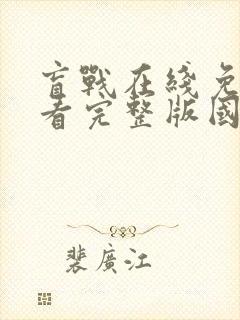 盲戰在綫免
看完整版國
裴廣江